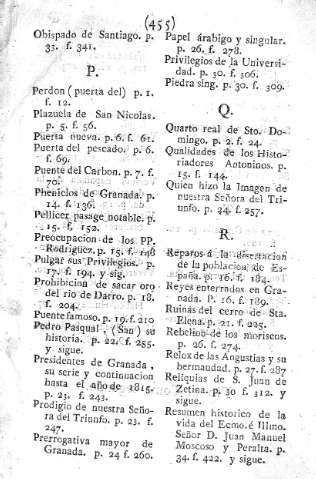 (455)
Obispado de Santiago. p.
33. f. 341.
P.
Perdon (puerta del) p. 1.
f. 12.
Plazuela de San Nicolas.
p. 5. f. 56.
Puerta nueva. p. 6. f. 61.
Puerta del pescado. p. 6.
f. 69.
Puente del Carbon. p. 7. f.
70.
Phenicios de Granada. p.
14. f. 136.
Pellicer pasage notable. p.
15. f. 152.
Preocupacion de los PP.
Rodriguez. p. 15. f. 148
Pulgar sus Privilegios. p.
17. f. 194. y sig.
Prohibicion de sacar oro
del rio de Darro. p. 18.
f. 204.
Puente famoso. p. 19. f. 210
Pedro Pasqual, (San) su
historia. p. 22. f. 255.
y sigue.
Presidentes de Granada,
su serie y continuacion
hasta el año de 1815.
p. 23. f. 243.
Prodigio de nuestra Seño-
ra del Triunfo. p. 23. f.
247.
Prerrogativa mayor de
Granada. p. 24 f. 260.
Papel árabigo y singular.
p. 26. f. 278.
Privilegios de la Universi-
dad. p. 30. f. 306.
Piedra sing. p. 30. f. 309.
Q.
Quarto real de Sto. Do-
mingo. p. 2. f. 24.
Qualidades de los Histo-
riadores Antoninos. p.
15. f. 144.
Quien hizo la Imagen de
nuestra Señora del Tri-
unfo. p. 34. f. 257.
R.
Reparos á la disertacion
de la poblacion de Es-
paña. p. 16. f. 184.
Reyes enterrados en Gra-
nada. P. 16. f. 189.
Ruinas del cerro de Sta.
Elena. p. 21. f. 225.
Rebelion de los moriscos.
p. 26. f. 274.
Relox de las Angustias y su
hermandad. p. 27. f. 287
Reliquias de S. Juan de
Zetina. p. 30 f. 312. y
sigue.
Resumen historico de la
vida del Ecmo. é Illmo.
Señor D. Juan Manuel
Moscoso y Peralta. p.
34. f. 422. y sigue.